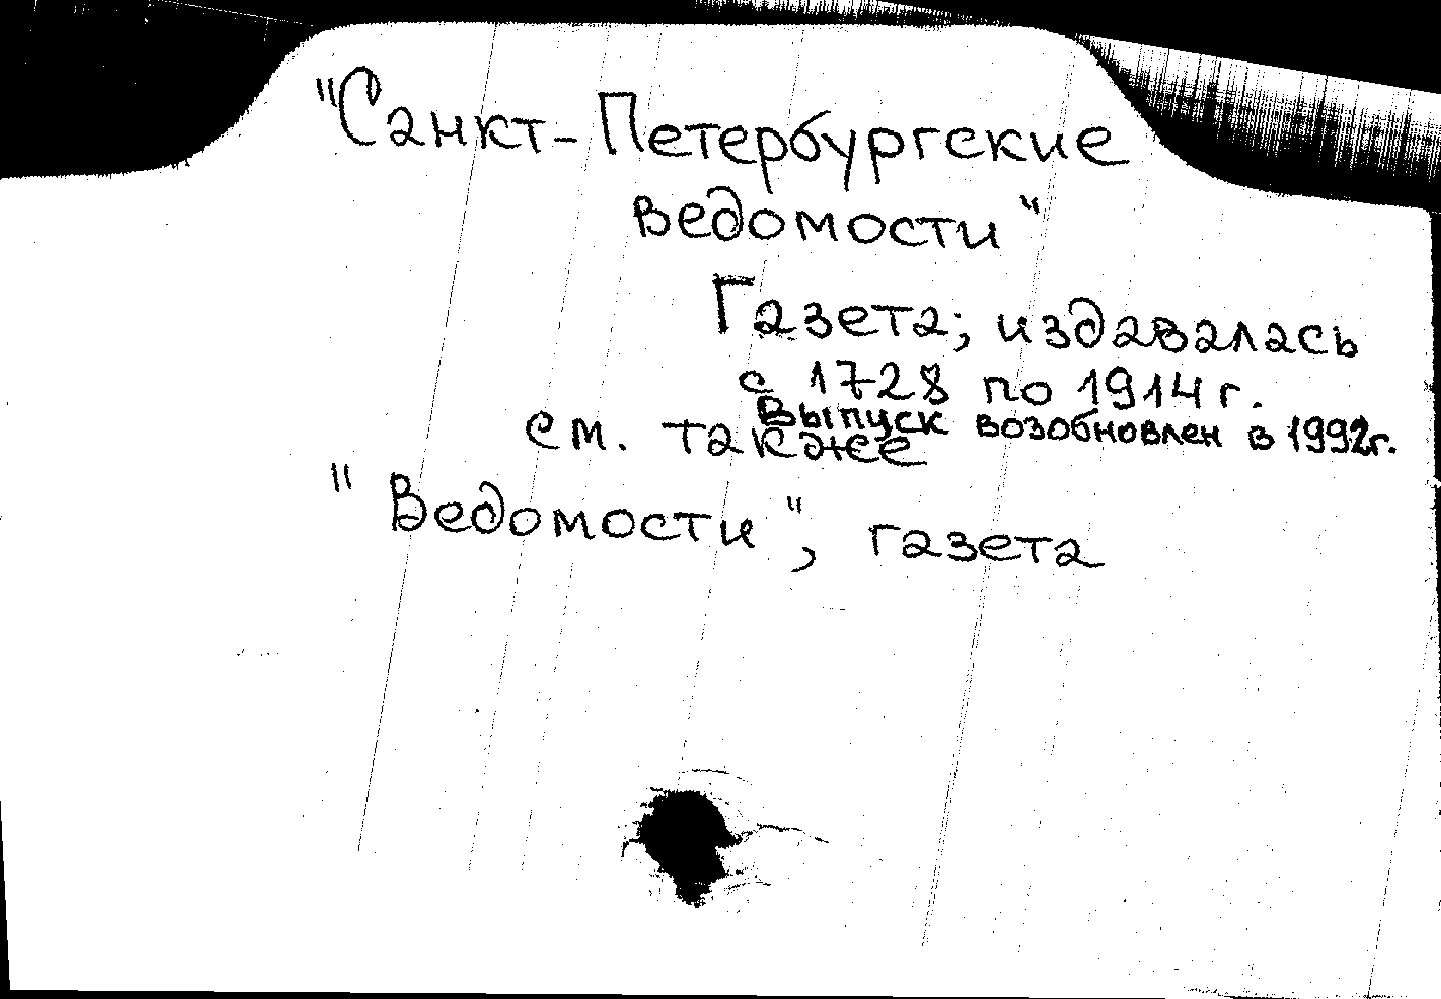 "Санкт-Петербургские
ведомости"
Газета; издавалась
с 1728 по 1914 г.
Выпуск возобновлен в 1992г.
см. также
"Ведомости", газета